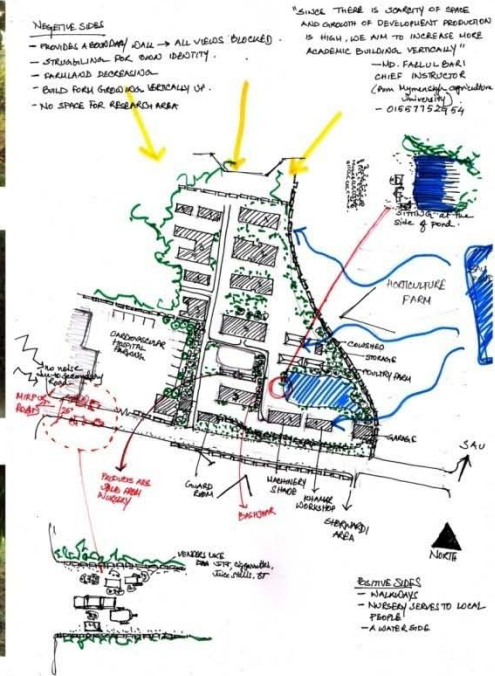 NEGETIVE SIDES
- PROVIDES A BOUNDARY WALL → ALL VIEWS BLOCKED.
- STRUGGLING FOR OWN IDENTITY.
- FARMLAND DECREASING
- BUILD FORM GROWING VERTICALLY UP.
- NO SPACE FOR RESEARCH AREA
"SINCE THERE IS SCARCITY OF SPACE
AND GROWTH OF DEVELOPMENT PRODUCTION
IS HIGH, WE AIM TO INCREASE MORE
ACADEMIC BUILDING VERTICALLY"
- MD. FAZLUL BARI
CHIEF INSTRUCTOR
(from Mymensingh agriculture
University)
SITTING at the
side of pond.
HORTICULTURE
FARM
COWSHED
STORAGE
POULTRY FARM
GARAGE
SAU
CARDIOVASCULAR
HOSPITAL
PARKING
no noise
due to secondary
Road
MIRPUR
ROAD
25'
PRODUCTS ARE
SALE FROM
NURSERY
GUARD
ROOM
BASHJHAR
MACHINERY
SHADE
KHAMAR
WORKSHOP
AREA
NORTH
VENDERS LIKE
Juice stalls, ST
POSITIVE SIDES
- WALKWAYS
- NURSERY SERVES TO LOCAL
PEOPLE!
- A WATER SIDE